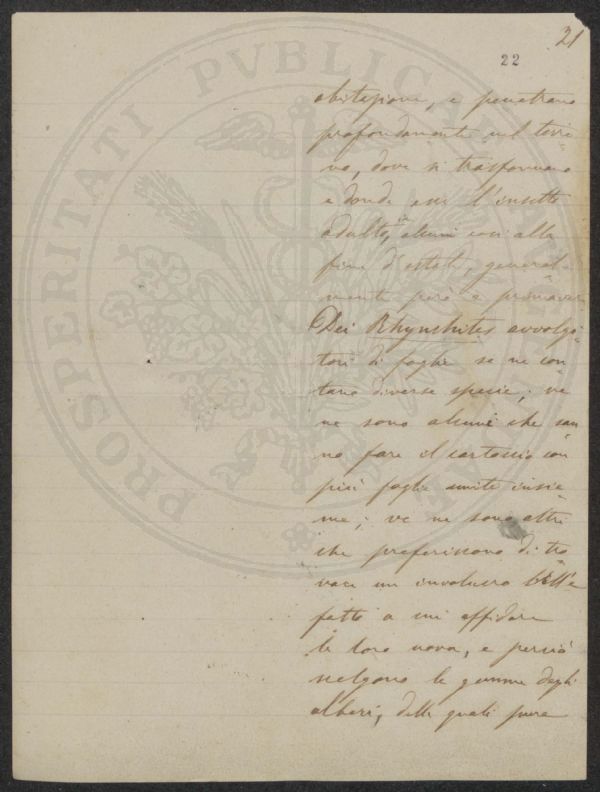 21
22
abitazione, e penetrano
profondamente nel terre
no, dove si trasformano
e donde esce l'insetto
adulto, in alcuni casi alla
fine d'estate, general-
mente però a primavera
Dei Rhynchites avvolgi-
tori di foglie se ne con
tano diverse specie; ve
ne sono alcuni che san
no fare il cartoccio con
più foglie unite insie-
me; ve ne sono altri
che preferiscono di tro
vare un involucro bell'e
fatto a cui affidare
le loro uova, e perciò
scelgono le gemme degli
alberi, delle quali pure
PROSPERITATI PVBLICAE